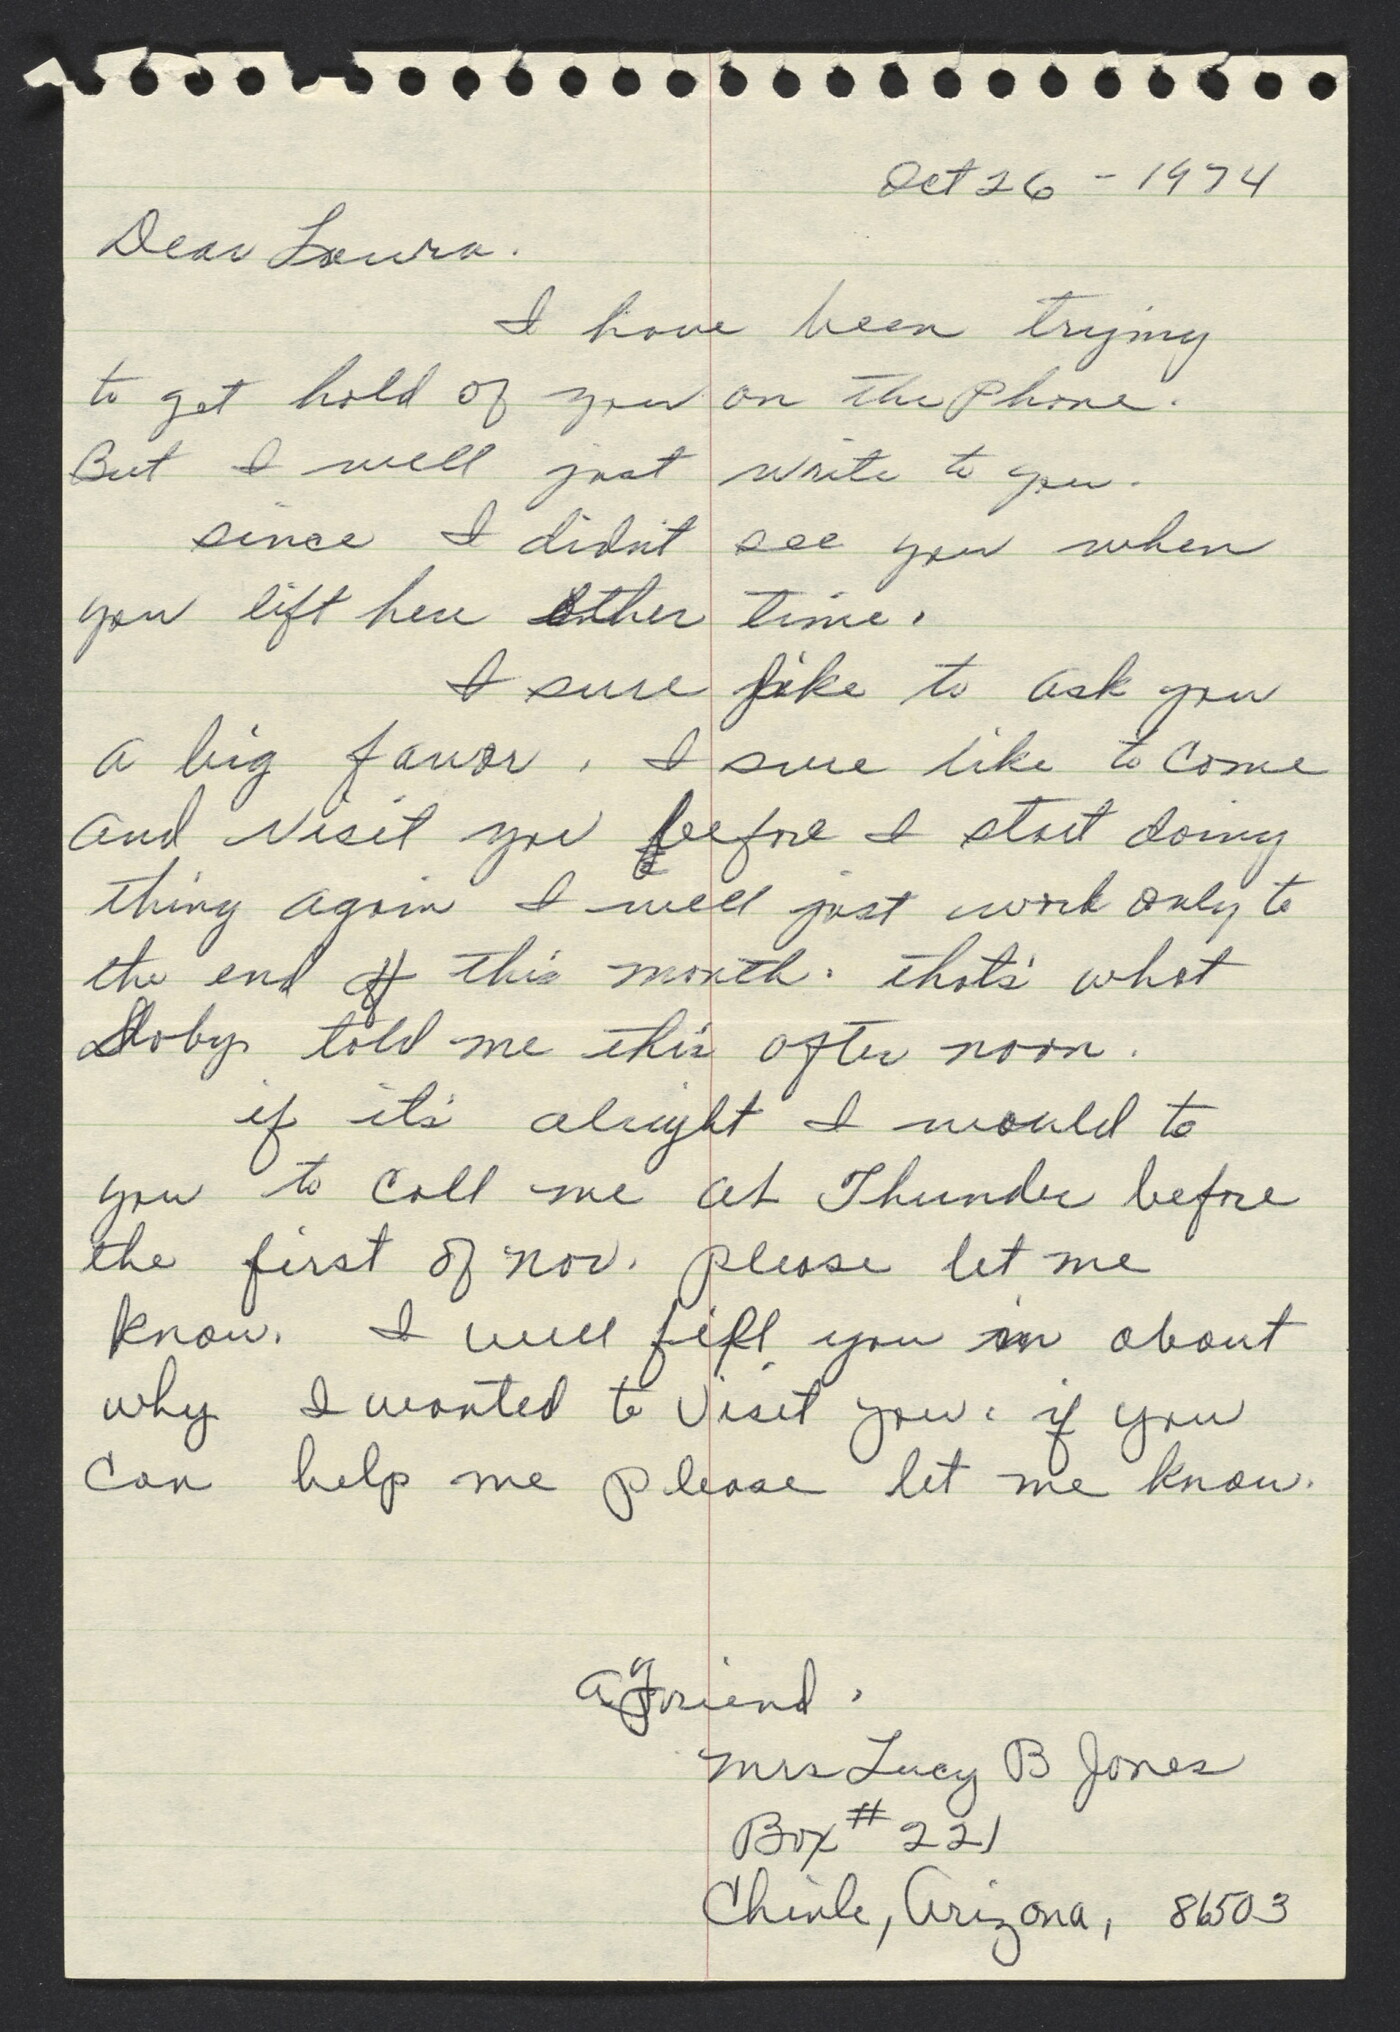 Oct 26 - 1974
Dear Laura.
I have been trying
to get hold of you on the phone.
But I well just write to you.
since I didn't see you when
you lift here other time.
I sure like to ask you
a big favor. I sure like to come
and visit you before I start doing
thing again I well just work only to
the end of this month. that's what
told me this after noon.
if it's alright I would to
you to call me at Thunder before
the first of nov. please let me
know. I will fill you in about
why I wanted to visit you. if you
can help me please let me know.
a Friend,
Mrs Lucy B Jones
Box # 221
Chinle, Arizona, 86503